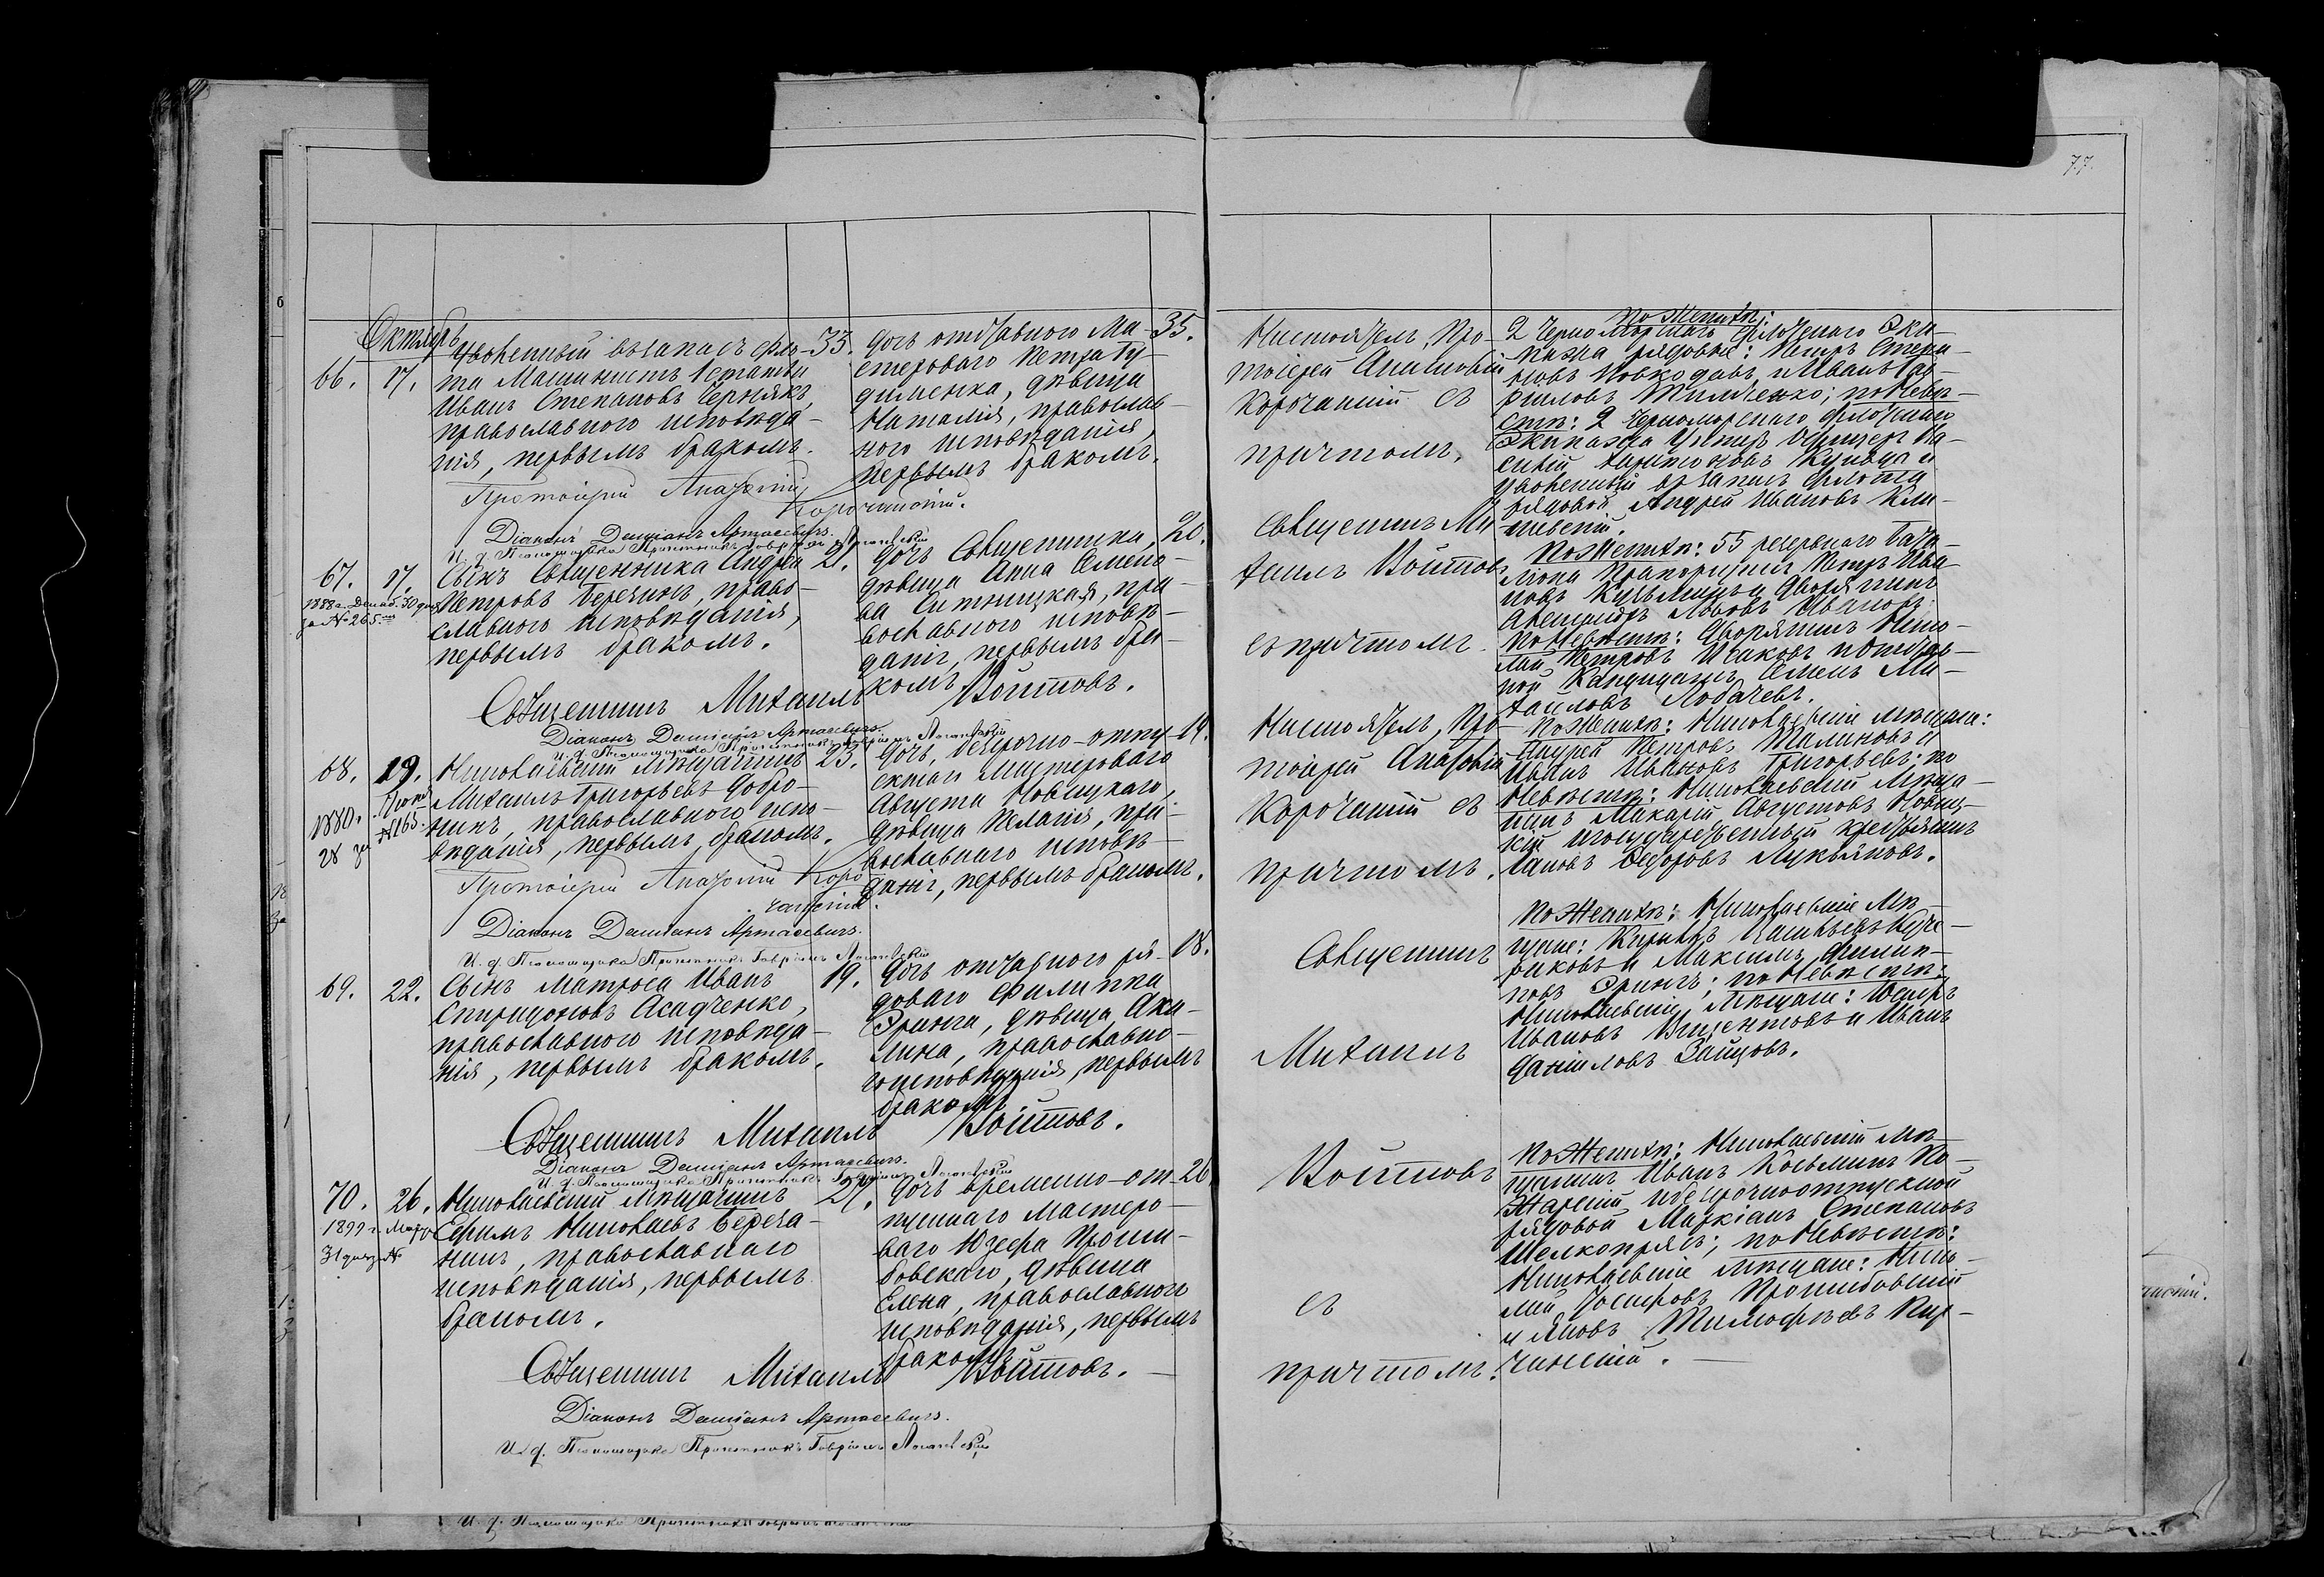 77.
Октябрь
66. 17.
Уволенный въ запасъ фло-
та Машинистъ 1 статьи
Иванъ Степановъ Чернякъ,
православного исповѣда-
нія, первымъ бракомъ.
33.
Дочь отставного Ма-
стероваго Петра Гу-
дименка, дѣвица
Наталія, православ-
ного исповѣданія,
первымъ бракомъ.
35.
Протоіерей Анатолій
Корочанскій.
Діаконъ Даміанъ Артасевичъ.
И. д. Псаломщика Причетникъ Гавріилъ
67. 17.
1888 г. Декаб. 30 дня
за № 265
Сынъ Священника Андрей
Петровъ Березинъ, право-
славного исповѣданія,
первымъ бракомъ.
21.
Дочь Священника,
дѣвица Анна Семено-
ва Ситницкая, пра-
вославного исповѣ-
данія, первымъ бра-
комъ.
20.
Священникъ Михаилъ Войтовъ.
Діаконъ Даміанъ Артасевичъ.
И. д. Псаломщика Причетникъ Гавріилъ
68. 19.
1880.
28 за № 165.
Николаевскій мѣщанинъ
Михаилъ Григорьевъ Добро-
нинъ, православного испо-
вѣданія, первымъ бракомъ.
23.
Дочь безсрочно-отпу-
скнаго Мастероваго
Августа Новицкаго,
дѣвица Пелагія, пра-
вославнаго исповѣ-
данія, первымъ бракомъ.
19.
Протоіерей Анатолій Коро-
чанскій.
Діаконъ Даміанъ Артасевичъ.
И. д. Псаломщика Причетникъ Гавріилъ
69. 22.
Сынъ матроса Иванъ
Спиридоновъ Асадченко,
православного исповѣда-
нія, первымъ бракомъ.
19.
Дочь отставного ря-
доваго Филиппа
Эринга, дѣвица Аки-
лина, православно-
го исповѣданія, первымъ
бракомъ.
18.
Священникъ Михаилъ Войтовъ.
Діаконъ Даміанъ Артасевичъ.
И. д. Псаломщика Причетникъ Гавріилъ
70. 26.
1899 г. Марта
31 дня за №
Николаевскій мѣщанинъ
Ефимъ Николаевъ Береза-
нинъ, православнаго
исповѣданія, первымъ
бракомъ.
27.
Дочь временно-от-
пускнаго мастеро-
ваго Юзефа
дѣвица
Елена, православного
исповѣданія, первымъ
бракомъ.
26
Священникъ Михаилъ Войтовъ.
Діаконъ Даміанъ Артасевичъ.
И. д. Псаломщика Причетникъ Гавріилъ
Настоятель, Про-
тоіерей Анатолій
Корочанскій съ
причтомъ.
По Женихѣ:
2 Черноморскаго флотскаго Эки-
пажа рядовые: Петръ Степа-
новъ и Иванъ Гав-
риловъ Тимченко; по Невѣ-
стѣ: 2 Черноморскаго флотскаго
Экипажа Унтеръ Офицеръ Ва-
силій Харитоновъ и
уволенный въ запасъ флота
рядовой Андрей Ивановъ Кли-
Священникъ Ми-
хаилъ Войтовъ
съ причтомъ.
По Женихѣ: 55 резервнаго бата-
ліона Прапорщикъ Петръ Ива-
новъ Кузьминъ и Дворянинъ
Александръ Львовъ Ивановъ;
По Невѣстѣ: Дворянинъ Нико-
лай Петровъ Исаковъ и
Кандидатъ Семенъ Ми-
хаиловъ Лобачевъ.
Настоятель, Про-
тоіерей Анатолій
Корочанскій съ
причтомъ.
По Женихѣ: Николаевскіе мѣщане:
Андрей Петровъ Талиновъ и
Иванъ Ивановъ Григорьевъ; по
Невѣстѣ: Николаевскій мѣща-
нинъ Макарій Августовъ Новиц-
кій и государственный крестьянинъ
Федоровъ Лукьяновъ.
Священникъ
Михаилъ
По Женихѣ: Николаевскіе мѣ-
щане: Кириллъ
и Максимъ Филип-
повъ Эрингъ; по Невѣстѣ:
Николаевскіе мѣщане: Петръ
Ивановъ и Иванъ
Даниловъ Зайцовъ.
Войтовъ
съ
причтомъ.
По Женихѣ: Николаевскій мѣ-
щанинъ Иванъ Косьминъ По-
жарскій и безсрочноотпускной
рядовой Маркіанъ Степановъ
Шелкопрясъ; по Невѣстѣ:
Николаевскіе мѣщане: Нико-
лай Іосифовъ
и Яковъ Тимофѣевъ